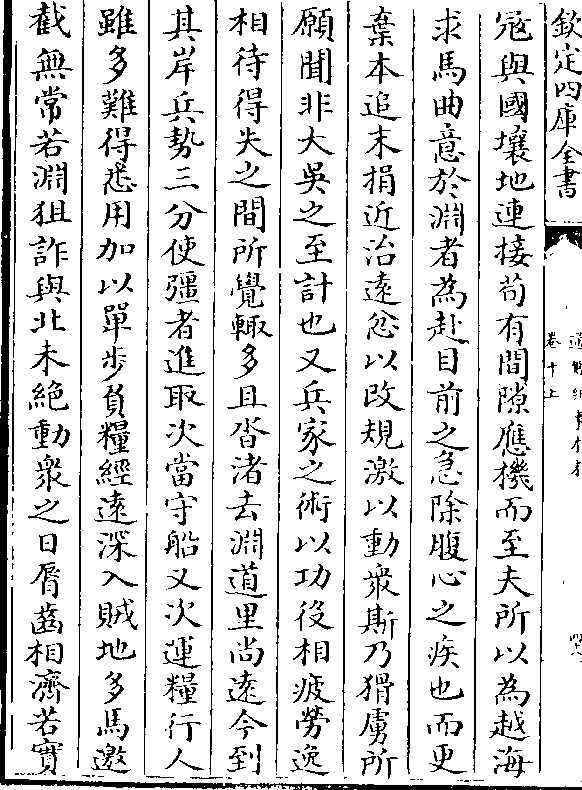 欽定四庫全書
卷十上
冦與國壤地連接茍有間隙應機而至夫所以為越海
求馬曲意於淵者為赴目前之急除腹心之疾也而更
棄本追末捐近治遠忿以改規激以動衆斯乃猾虜所
願聞非大吳之至計也又兵家之術以功役相疲勞逸
相待得失之間所覺輙多且沓渚去淵道里尚逺今到
其岸兵勢三分使彊者進取次當守船又次運糧行人
雖多難得悉用加以單步負糧經遠深入賊地多馬邀
截無常若淵狙詐與北未絶動衆之日脣齒相濟若實